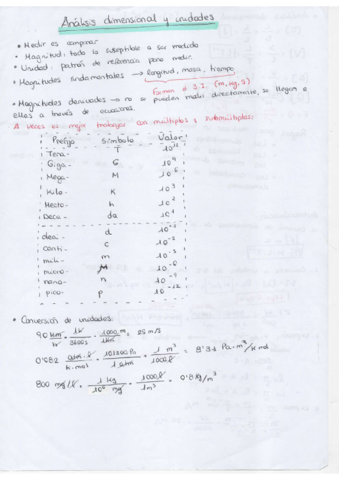 Análisis dimensional y unidades
• Medir es comparar
• Magnitud: todo lo susceptible a ser medido
• Unidad: patrón de referencia para medir.
• Magnitudes fundamentales → longitud, masa, tiempo
Forman el S.I. (m, kg, s)
• Magnitudes derivadas → no se pueden medir directamente, se llegan a
ellas a través de ecuaciones.
A veces es mejor trabajar con múltiplos y submúltiplos:
Prefijo Símbolo Valor
Tera- T
Giga- G
Mega- M
Kilo- K 10³
Hecto- h
Deca- da 10¹
deci- d 10⁻¹
centi- c 10⁻²
mili- m 10⁻³
micro- μ 10⁻⁶
nano- n 10⁻⁹
pico- p 10⁻¹²
• Conversión de unidades:
90 km/h · 1h/3600s · 1000m/1km = 25 m/s
0'082 atm·l/k·mol · 101300 Pa/1 atm · 1 m³/1000l = 8'31 Pa·m³/k·mol
800 mg/l · 1 kg/10⁶ mg · 1000l/1m³ = 0'8 kg/m³